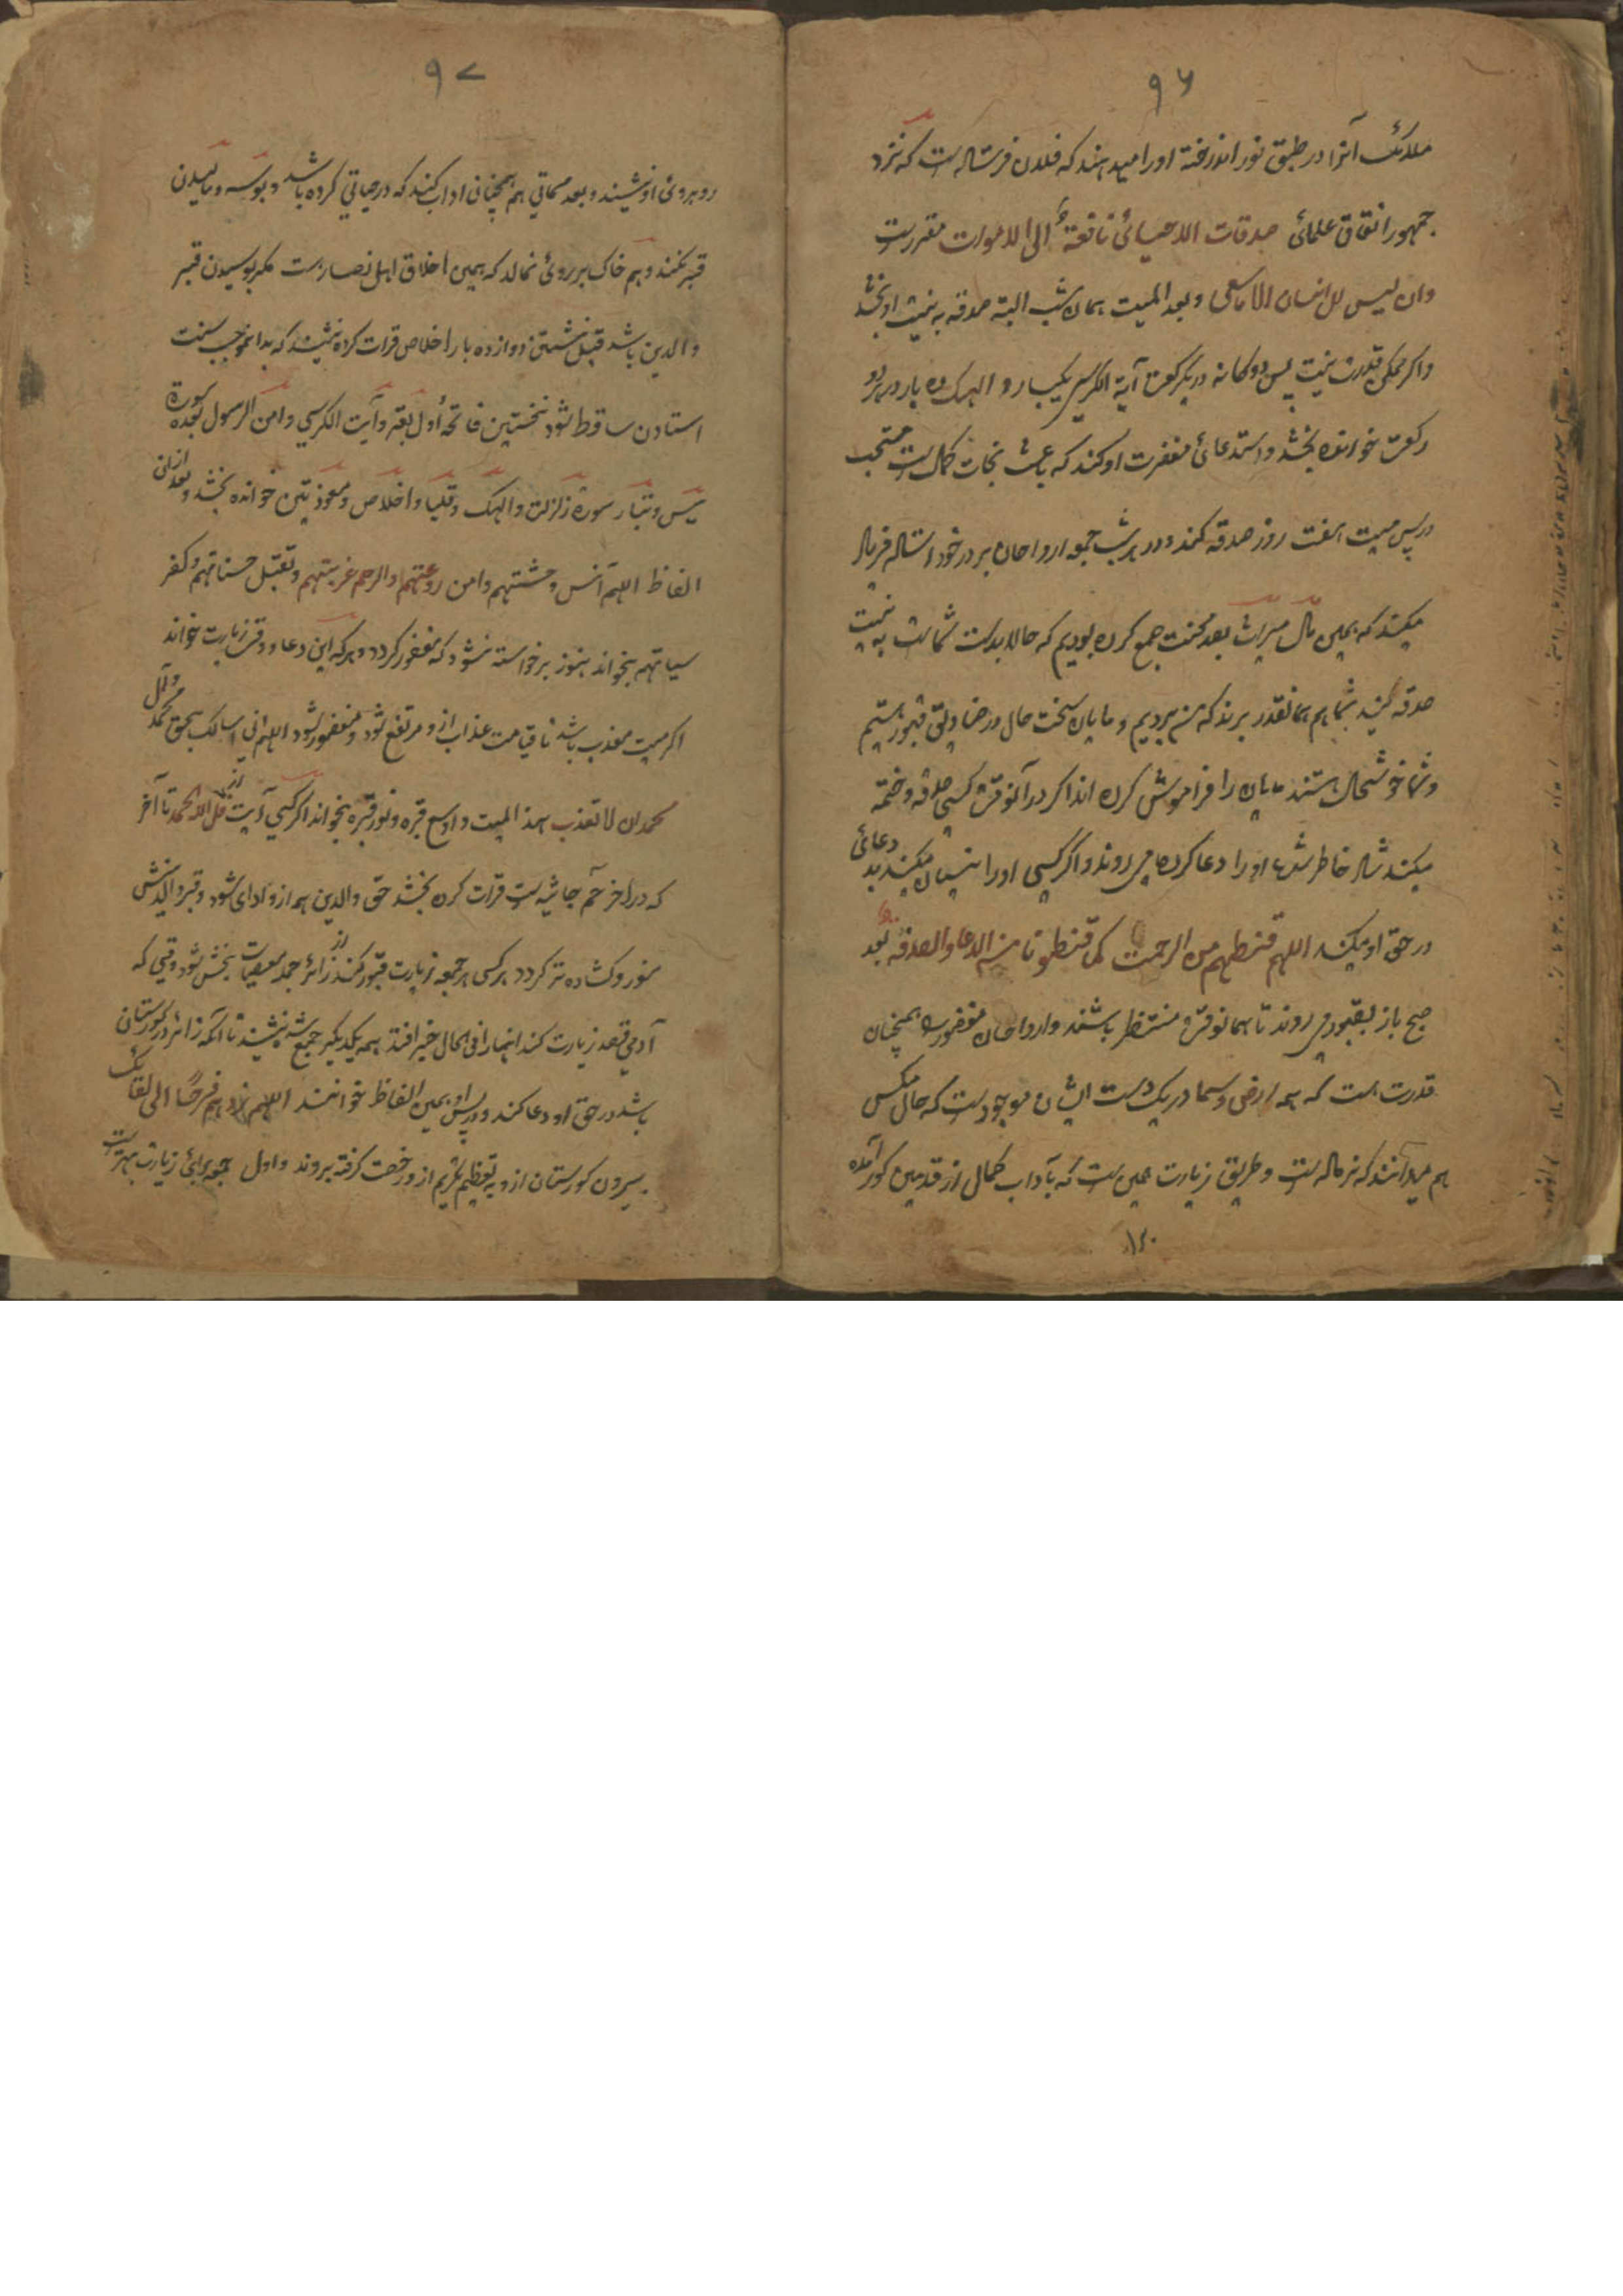 ۹۶
ملائک آنرا در طبق نور انداخته او را میدهند که فلان فرستاده است که نزد
جمهور اتفاق علمای صدقات الاحیائی نافعة الی الاموات مقررست
وان لیس للانسان الا ما سعی و بعد المیت بهمان شب البته صدقه به نیت او بخشد
و اگر ممکن قدرت نیست پس دوگانه در هر رکعت آیة الکرسی یکبار و الهکم ده بار در هر دو
رکعت خوانده بخشد و استدعائ مغفرت او کند که باعث نجات کمال است مستحب
در پس میت هفت روز صدقه کنند و در هر شب جمعه ارواحان بر در خود استاده فریاد
میکنند که همین مال میراث بعد محنت جمع کرده بودیم که حالا بدست شماست به نیت
صدقه کنید شما هم همانقدر برند که من بردیم و مایان سخت حال در قبور هستیم
و شما خوشحال هستند مایان را فراموش کرده اند اگر در آنوقت کسی صدقه و ختمه
میکند شاد خاطر شده او را دعا کرده می روند و اگر کسی او را نسیان میکند بد دعائ
در حق او میکند اللهم قنطهم من الرحمت کما قنطونا من الدعا والصدقه بعد
صبح باز بقبور می روند تا همانوقت منتظر باشند و ارواحان مغفور همچنان
قدرت هست که همه ارض و سما در یک دست ایشان موجودست که حال مگس
هم میدانند که نر ماده است و طریق زیارت همین است که بآداب کمال از قدمین گور آمده
۱۲۰
۹۷
روبروئ او نشیند و بعد مماتی هم همچنان آداب کنند که در حیاتی کرده باشد و بوسه و مالیدن
قبر نکنند و هم خاک بر روئ نمالد که همین اخلاق اهل نصارست مگر بوسیدن قبر
والدین باشد قبل نشستن دوازده بار اخلاص قرات کرده بنشیند که بدانموجب سنت
استادن ساقط شود نخستین فاتحه اول بقر و آیت الکرسی و امن الرسول بعده سورة
یس و تبار سورة زلزلت و الهکم و قلیا و اخلاص و معوذتین خوانده بخشد و بعد ازان
الفاظ اللهم آنس وحشتهم وامن روعتهم والرحم غربتهم وتقبل حسناتهم وکفر
سیاتهم بخواند هنوز برخواسته نشود که مغفور گردد و هر که این دعا در وقت زیارت خواند
اگر میت معذب باشد تا قیامت عذاب ازو مرتفع شود و مغفور شود اللهم انی اسالک بحق محمد وآل
محمد ان لا تعذب هذا المیت واوسع قبره ونور قبره بخواند اگر کسی آیت از فلله الحمد تا آخر
که در آخر حم جاثیه است قرات کرده بخشد حق والدین همه ازو ادای شود و قبر والدینش
منور و کشاده تر گردد هر کسی هر جمعه زیارت قبور کند از زائر جمله معصیات بخش شود وقتی که
آدمی قصد زیارت کند انها را فی الحال خبر افتد همه یکدیگر جمع شده نشیند تا آنکه زائر در گورستان
باشد در حق او دعا کند و در پس او بهمین الفاظ خوانند اللهم زدهم فرحًا الی لقائک
بیرون گورستان ازو به تعظیم تکریم ازو رخصت گرفته بروند و اول جمعه برائ زیارت بهترست